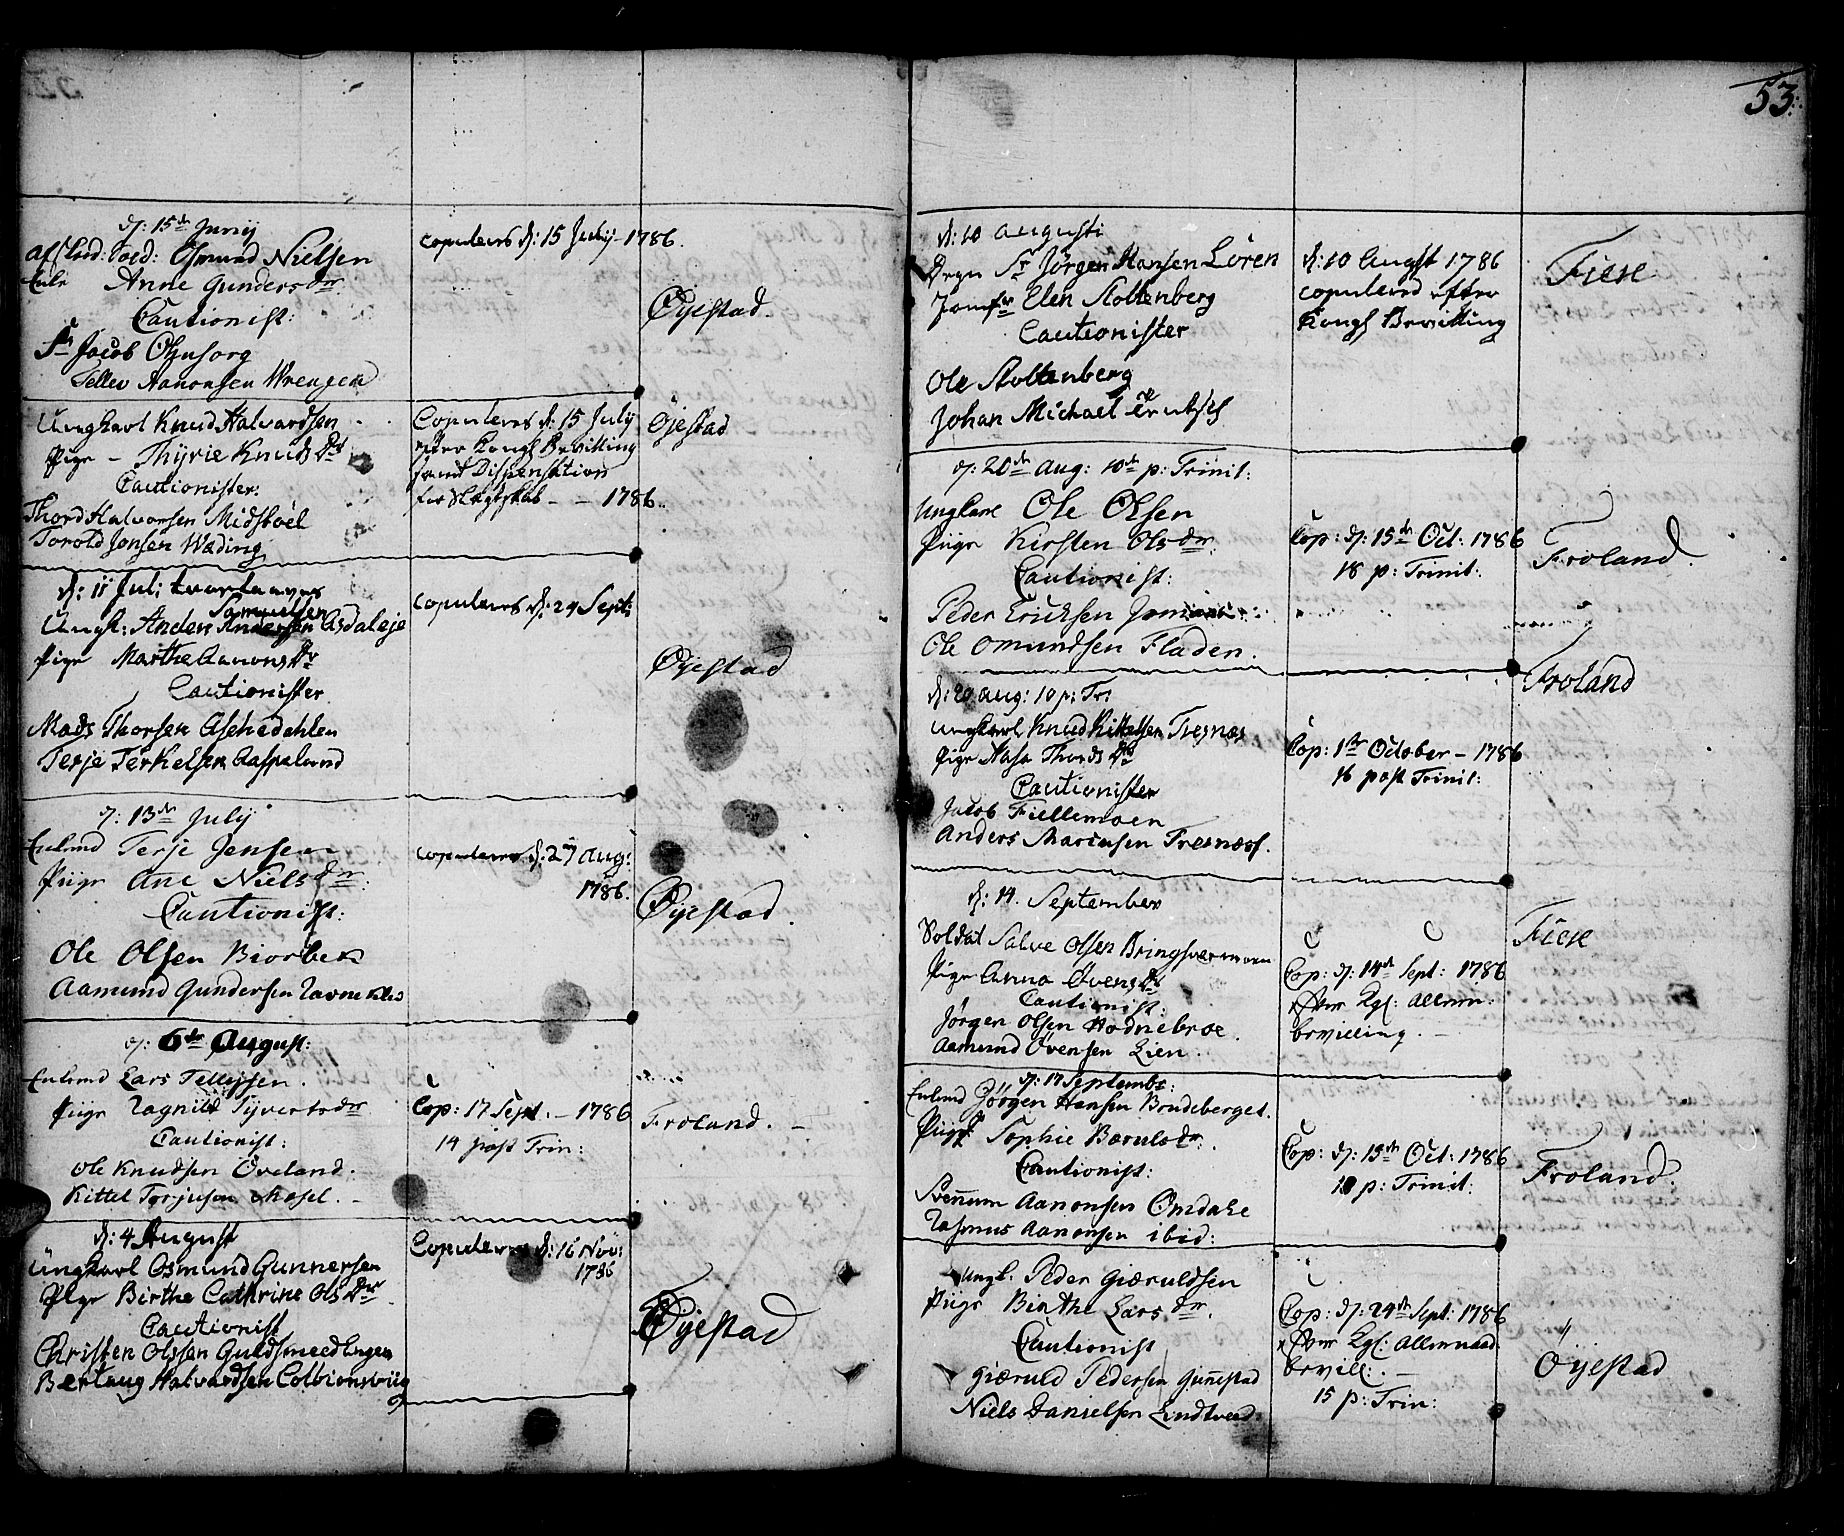 53.
d: 15de Junij
Afskeed: Sold: Osmund Nielsen
Enke Anne Gundersdr
Cautionist:
Sr Jacob
Tellev Aanonsen Wrengen
copuleres d: 15 July 1786.
Øyestad.
Ungkarl Knud Halvardsen
Pige - Thyrie Knuds Dr
Cautionister:
Thord Halvorsen Midtbøel
Torold Jonsen Wæding
Copuleres d: 15 July
efter Kongl Bevilling
samt Dispensation
for Slegtskab - - 1786.
Øjestad
d: 11 Juli
Samuelsen
Ungk: Anden Andersen Asdaleje
Pige Marthe Aanons Dr
Cautionister
Mads Thorsen Aschedahlen
Terje Terkelsen Raspelund
copuleres d: 24 Sept:
Øyestad
d: 13de July
Enkemd Terje Jensen
Piige Ane Nielsdr:
Cautionist:
Ole Olsen Biorbek
Aamund Gundersen Ravnekles
copuleres d: 27 Aug:
1786.
Øyestad.
d: 6de August:
Enkemd Lars Tellefsen.
Piige Ragnild Syvertsdr
Cautionist:
Ole Knudsen Øveland.
Kittel Torjusen Mosel. -
Cop: 17 Sept. - 1786
14 post Trin:
Froland. -
d: 4 August
Ungkarl Osmund Gunnersen
Pige Birthe Cathrine Ols Dr
Cautionist
Christen Olssen Guldsmedengen
Berteug Halvardsen Colbionsviig
Copuleres d: 16 Nov:
1786
Øyestad
d: 10 Augusti
Degn Sr Jørgen Hansen Løren
Jomfr Elen Stoltenberg
Cautionister
Ole Stoltenberg
Johan Michael
d: 10 Augst 1786
copulered efter
Kongl Bevilling
Fiere
d: 20de Aug: 10de p: Trinit:
Ungkare Ole Olsen
Piige Kirsten Olsdr.
Cautionist:
Peder Ericksen
Ole Omundsen Fladen.
Cop: d: 15de Oct: 1786
18 p: Trinit:
Froland.
d: 20 Aug: 10 p: Tr:
Ungkarl Knud Kittelsen Tresnæs
Pige Aase Thords Dr
Cautionister
Jacob Fiellemoen
Anders Mariusen Tresnæss.
Cop: 1ste October - 1786
16 post Trinit:
Froland
d: 14. September
Soldat Salve Olsen Bringsværmoen
Pige Anna Øvens Dr
Cautionist:
Jørgen Olsen Hodnebroe.
Aamund Øvensen Lien.
Cop: d: 14de Sept: 1786
efter Kgl: Allern:
bevilling. -
Fiere
d: 17 Septembr:
Enkemd Jørgen Hansen Bondeberget.
Piige Sophie Bærulsdr.
Cautionist:
Svennum Aanonsen Omdale
Rasmus Aanonsen ibid:
Cop: d: 15de Oct: 1786
18 p: Trinit:
Froland.
Ungk. Peder Giæruldsen
Piige Birthe Larsdr.
Cautionist
Giæruld Pedersen Gunnestad
Niels Danielsen Lundtveed
Cop: d: 24de Sept: 1786
efter Kgl: Allernaad
bevill: . -
15 p: Trin:
Öyestad